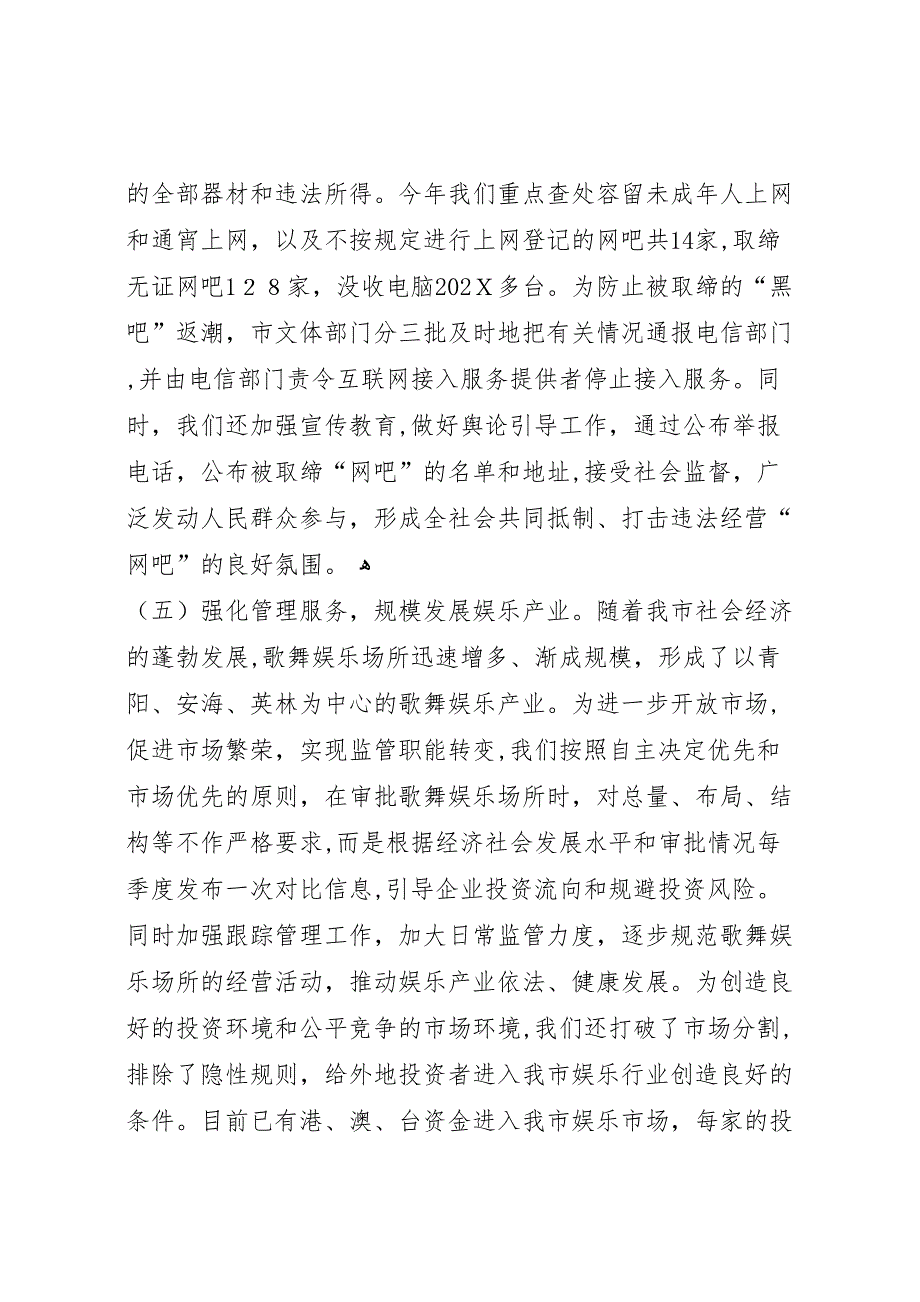 的全部器材和违法所得。今年我们重点查处容留未成年人上网
和通宵上网，以及不按规定进行上网登记的网吧共14家,取缔
无证网吧1２８家，没收电脑202Ｘ多台。为防止被取缔的“黑
吧”返潮，市文体部门分三批及时地把有关情况通报电信部门
,并由电信部门责令互联网接入服务提供者停止接入服务。同
时，我们还加强宣传教育,做好舆论引导工作，通过公布举报
电话，公布被取缔“网吧”的名单和地址,接受社会监督，广
泛发动人民群众参与，形成全社会共同抵制、打击违法经营“
网吧”的良好氛围。 ﻫ
（五）强化管理服务，规模发展娱乐产业。随着我市社会经济
的蓬勃发展,歌舞娱乐场所迅速增多、渐成规模，形成了以青
阳、安海、英林为中心的歌舞娱乐产业。为进一步开放市场,
促进市场繁荣，实现监管职能转变,我们按照自主决定优先和
市场优先的原则，在审批歌舞娱乐场所时，对总量、布局、结
构等不作严格要求,而是根据经济社会发展水平和审批情况每
季度发布一次对比信息,引导企业投资流向和规避投资风险。
同时加强跟踪管理工作，加大日常监管力度，逐步规范歌舞娱
乐场所的经营活动，推动娱乐产业依法、健康发展。为创造良
好的投资环境和公平竞争的市场环境,我们还打破了市场分割,
排除了隐性规则，给外地投资者进入我市娱乐行业创造良好的
条件。目前已有港、澳、台资金进入我市娱乐市场，每家的投